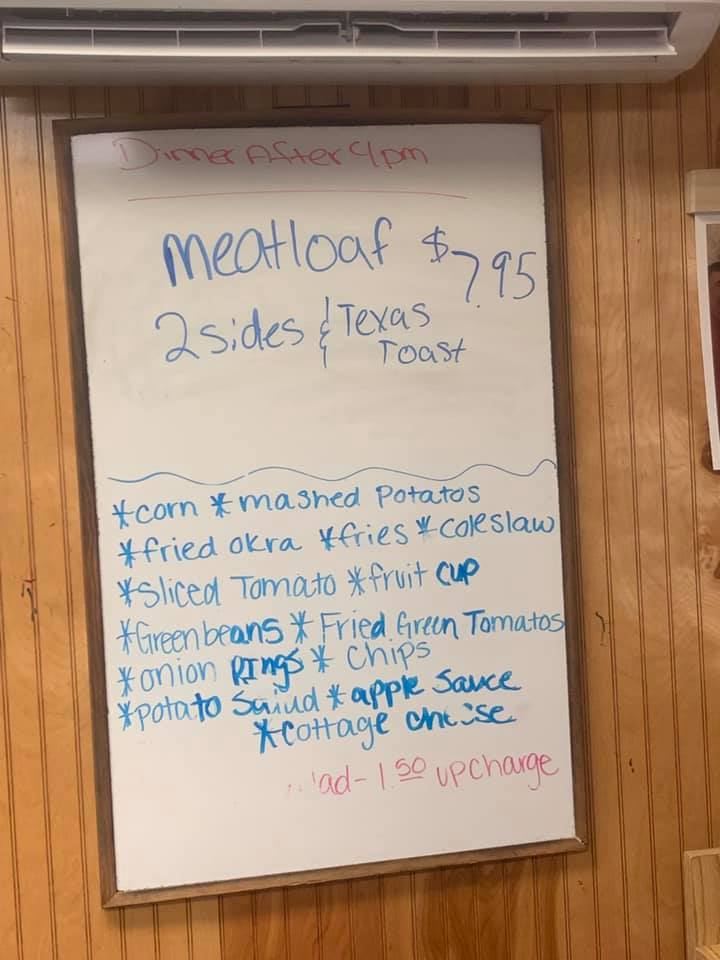 Dinner After 4pm
meatloaf $7.95
2 sides & Texas
Toast
*corn *mashed Potatos
*fried okra *fries *coleslaw
*sliced Tomato *fruit cup
*Greenbeans *Fried Green Tomatos
*onion Rings * Chips
*potato Salud *apple sauce
*cottage cheese
- 1.50 upcharge